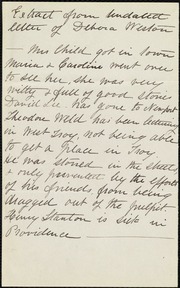 Extract from undated
letter of Debora Weston
— Mrs Child got in town
Maria & Caroline went over
to see her, she was very
witty & full of good stories
David Lee. has gone to Newport
Theodore Weld has been lecturing
in West Troy, not being able
to get a place in Troy.
He was stoned in the streets
& only prevented by the efforts
of his friends from being
dragged out of the pulpit.
Henry Stanton is sick in
Providence —